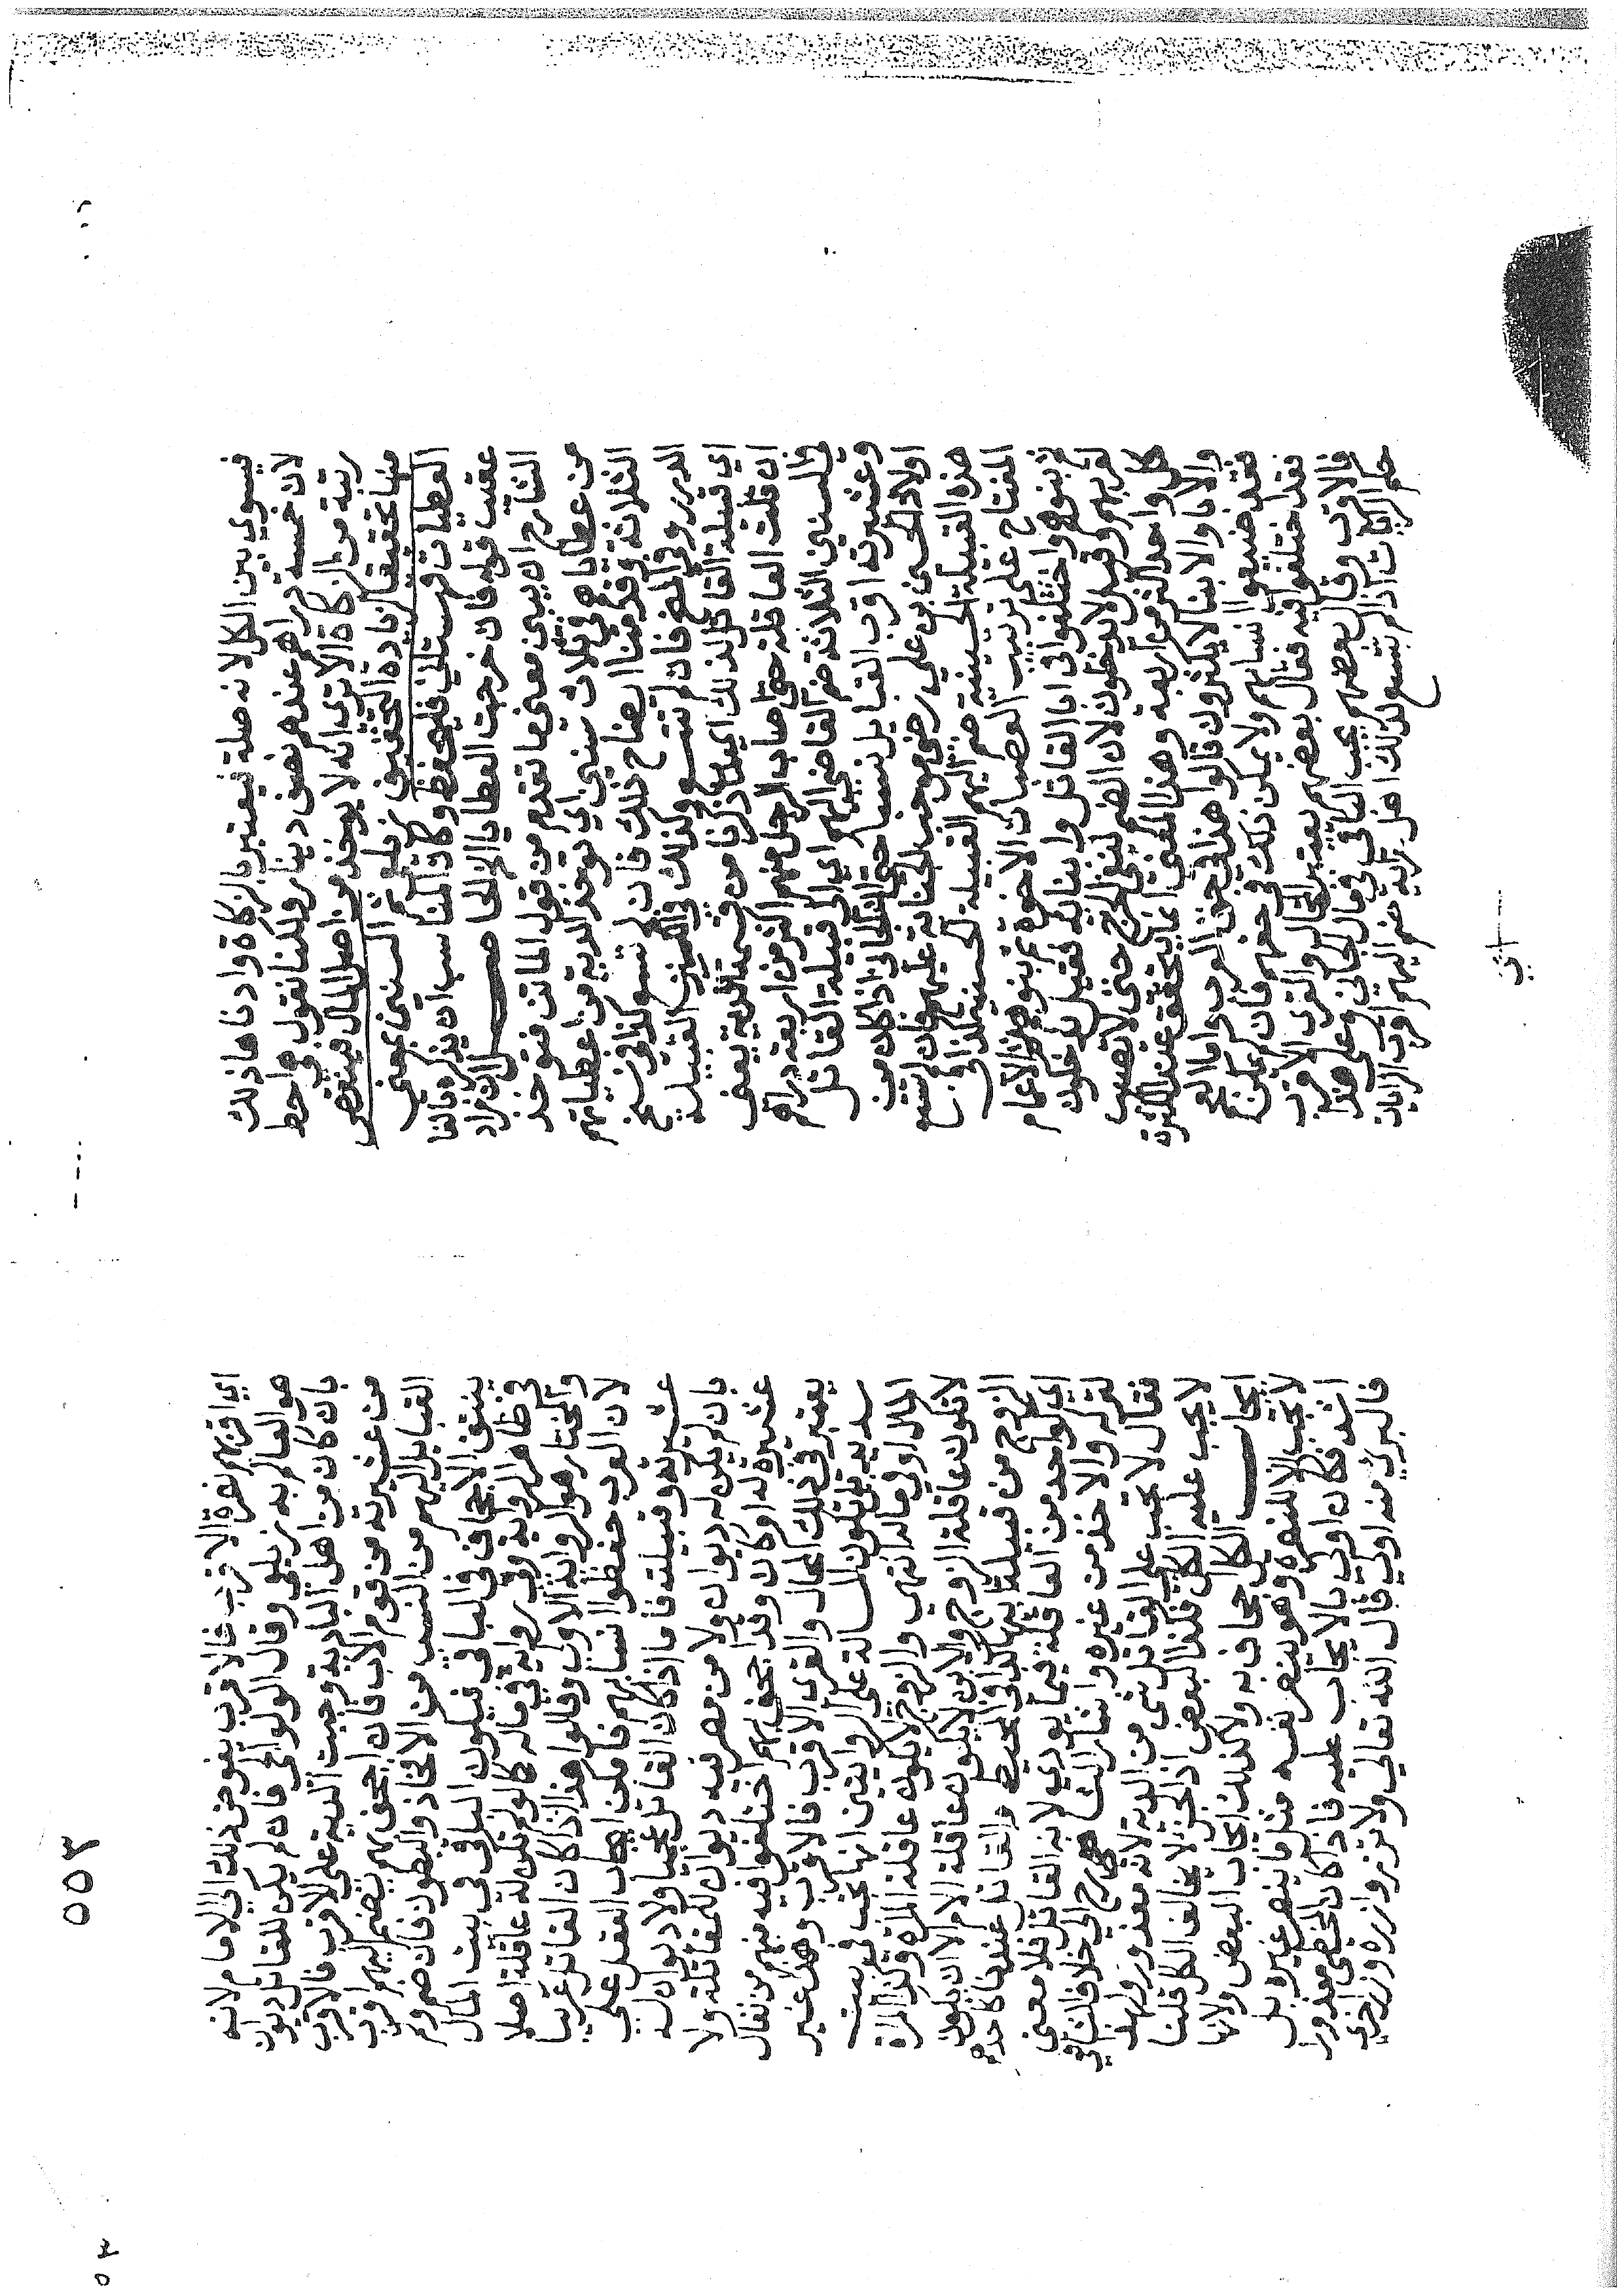 فيسوي بين الكل لانه صلة فيعتبر بالزكاة وادناها ذلك
لان خمسة دراهم عندهم نصف دينار ولكنا نقول هي احط
رتبة من الزكاة الا ترى انه لا يوخذ من اصل المال فينتقص
منها تحقيقا لزيادة التخفيف زيلعي السنين بمعنى
العطيات قهستاني فليحفظ وكان المناسب ان يذكره بالفا
عقيب قوله فان خرجت العطايا الخ لما صـ ان مراد
الشارح ان يبين معنى ما تقدم من قول الماتن فتوخذ
من عطاياهم في ثلاث سنين اي توخذ الدية من اعطياتهم
الثلاثة وقدمنا ايضاح ذلك فان لم تتسع كذا في نسخ
الدرر وفي المنح فان لم تتسع وكذلك في التنوير القبيلة
اي قبيلة القاتل لذلك اي لما ذكرنا من قسمة الدية يعني
ان قلت العاقلة حتى اصاب الرجل منهم اكثر من اربعة دراهم
في السنين الثلاثة ضم القاضي اليهم اي الى قبيلة القاتل
وعشيرته اقرب القبايل نسبا حتى ان الجاني اذا كان من
اولاد الحسين بن علي رضي من حب الجناية عليهم وان لم تتسع
هذه القبيلة الحسينية ضم اليهم القبيلة الحسنية كذا في
المفتاح على ترتيب العصبات الاخوة ثم بنوهم ثم الاعمام
ثم بنوهم واختلفوا في ابا القاتل وابنايه فقيل يدخلون
لقربهم وقيل لا يدخلون لان الضم لنفي الحرج حتى لا تصيب
كل واحد اكثر من اربعة وهذا المعنى انما يتحقق عند الكثرة
والابا والابنا لا يكثرون قالوا هذا في حق العرب واما العجم
فقد ضيعوا انسابهم ولا يمكن ذلك في حقهم فان لم يكن
فقد اختلفوا فيه فقال بعضهم يعتبر المحال والقرى الاقرب
فالاقرب وقال بعضهم يجب الباقي في مال الجاني وعلى هذا
حكم الرايات اذا لم تتسع لذلك اهل راية ضم اليهم اقرب الرايات
اي اقربهم نصرة الاقرب فالاقرب يفوض ذلك الى الامام لانه
هو العالم به زيلعي وقال الولوالجي فان لم يكن للقاتل ديوان
بان كان من اهل البادية وجبت الدية على الاقرب فالاقرب
من عشيرته من قوم الاب فان اجحف بهم يضم اليهم اقرب
القبايل اليهم من النسب من الافخاذ والبطون فان ضم ولم
ينتف الاجحاف في الباقي فيكون الباقي في بيت المال
في ظاهر الرواية وفي رواية في ماله كالو لم تكن له عاقلة اصلا
والمختار هو الرواية الاولى وقالوا هذا اذا كان القاتل عربيا
لان العرب حفظوا انسابهم فامكن ايجاب العقل على
عشيرته وقبيلته فاما اذا كان القاتل عجميا ولا ديوان له
بان لم يكن له ديوان ولا من مصر فيه ديوان للمقاتلة ولا
عشيرة له او كان وقد اجحف بهم اختلفوا فيه منهم من قال
يعتبر في ذلك المحال والقرى الاقرب فالاقرب وهذا غير
سديد بل تكون المسالة على الروايتين انها تجب في بيت
المال او في ماله انتهى والزوج لا يكون عاقلة المرة وكذا المرة
لا تكون عاقلة الزوج والابن لا يكون عاقلة الام الا ان يكون
الزوج من قبيلتها كذا في المحيط والقاتل عندنا كاحدهم
اي كواحد من العاقلة فيما يودي لانه القاتل فلا معنى
لتركه والاخذ من غيره واشار الشارح الى خلاف الشافعي
فقال لا تجب على القاتل شي من الدية لانه معذور ولهذا
لا يجب عليه الكل فكذا البعض اذ الجزء لا يخالف الكل قلنا
ايجاب الكل اجحاف به ولا كذلك ايجاب البعض ولانها
لا تجب الا للنصرة وهو ينصر نفسه مثل ما ينصر غيره بل
اشد فكان اولى بالايجاب عليه فاذا كان المخطي معذورا
فالبري منه اولى قال الله تعالى ولا تزر وازرة وزر اخرى
٥٥٣